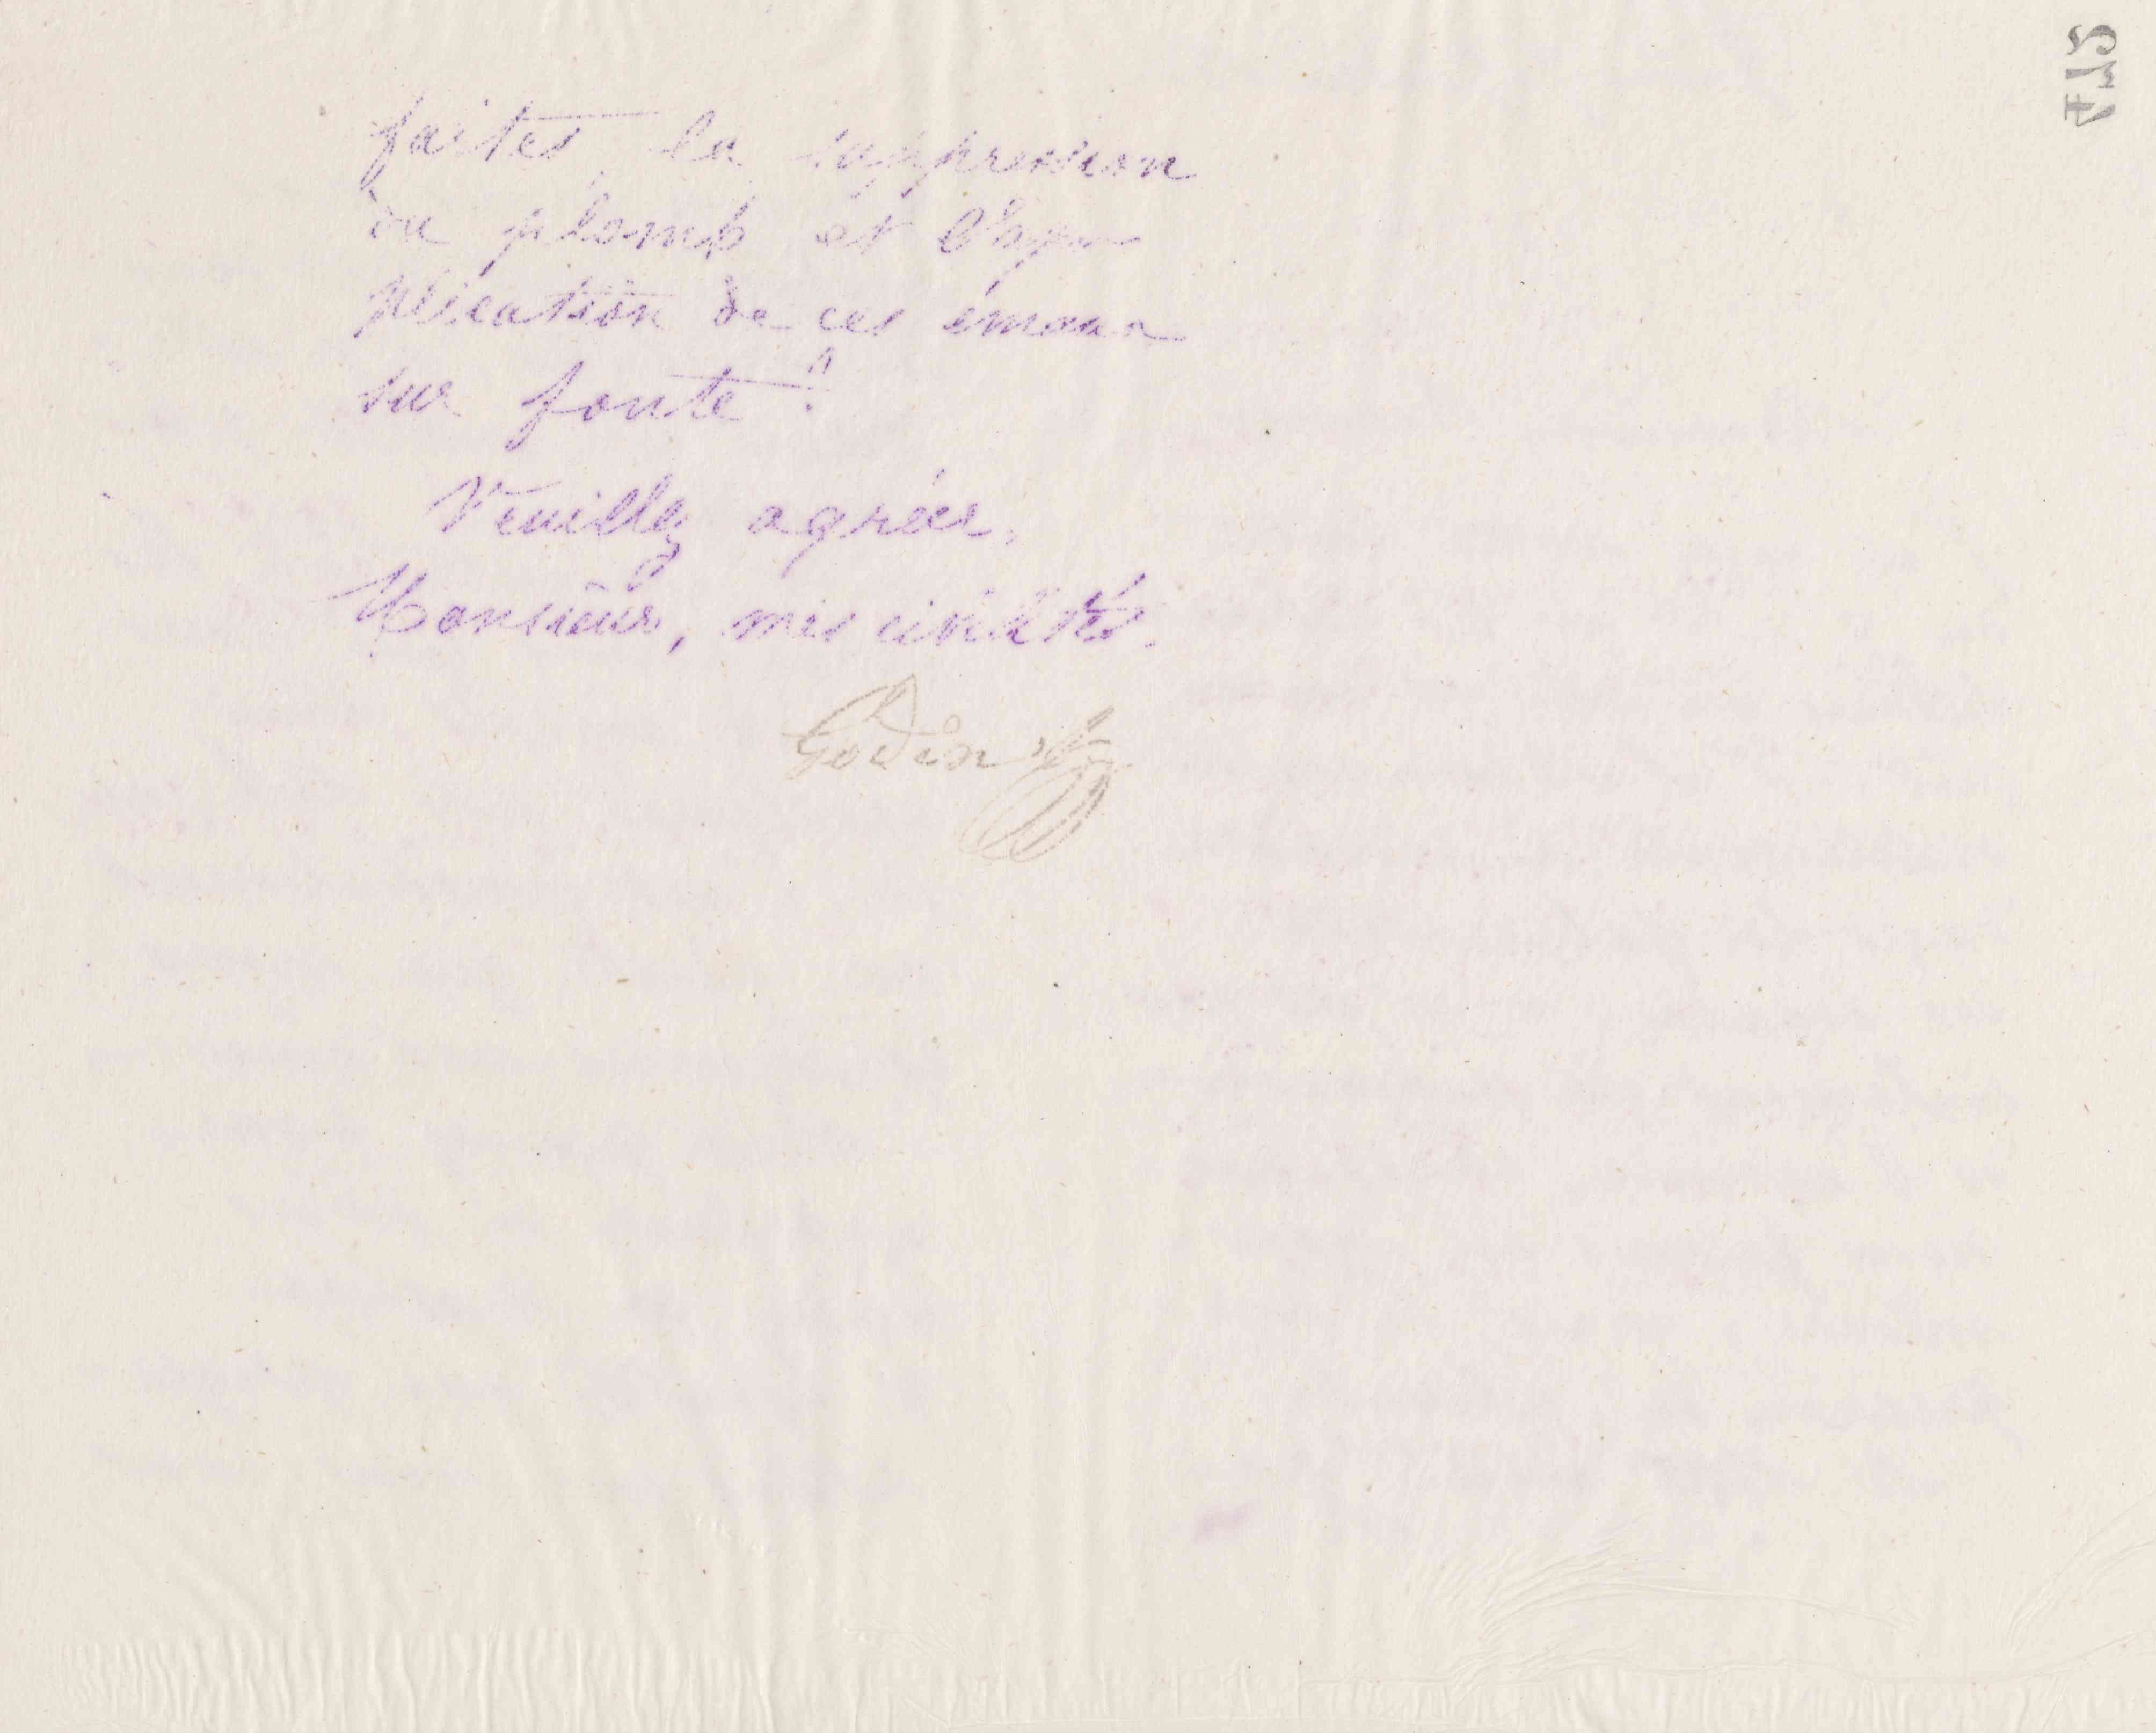 faites la suppression
du plomb et l'ap
plication de ces émaux
sur fonte ?
Veuillez agréer,
Monsieur, mes civilités.
Godin